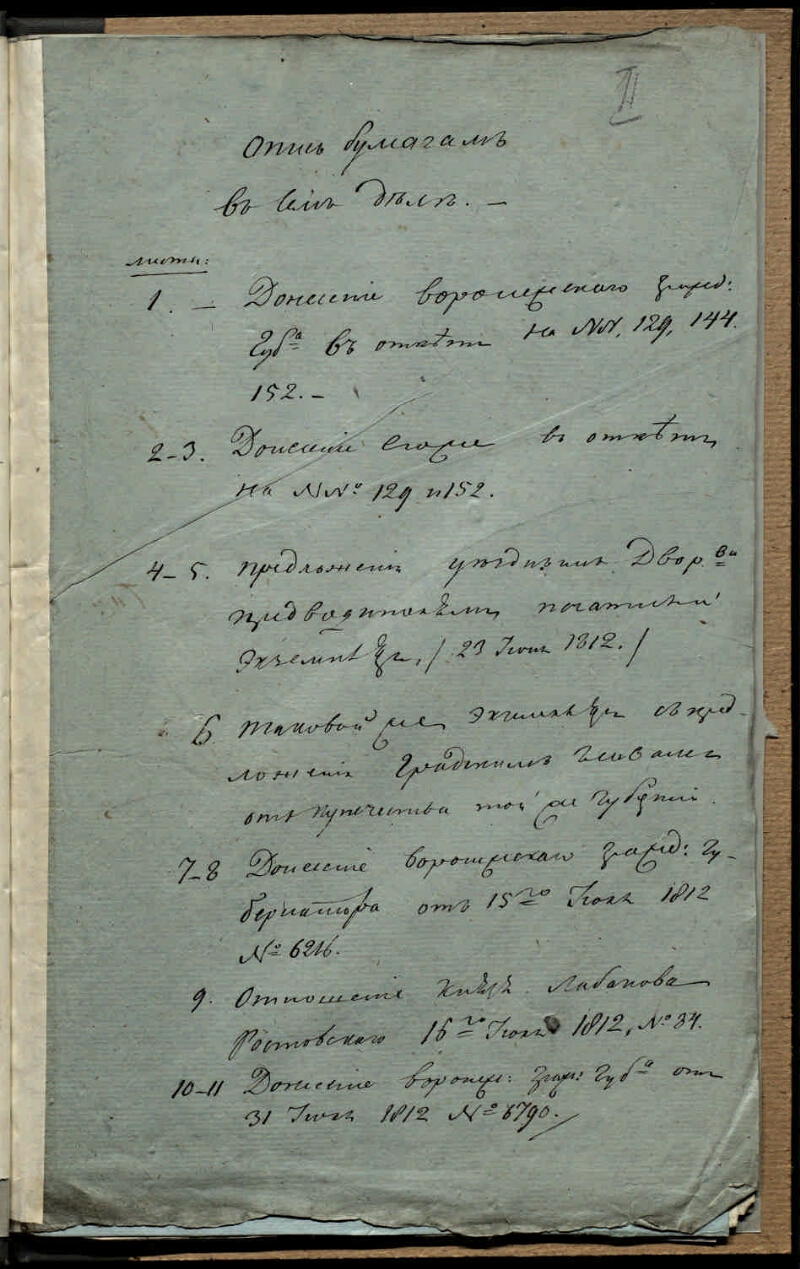 II
Опись бумагамъ
въ семъ дѣлѣ. –
листы:
1. – Донесеніе воронежскаго гражд:
Губ<sup>а</sup> въ отвѣтъ на NN. 129, 144.
152. –
2-3. Донесеніе егоже въ отвѣтъ
на NN° 129 и 152.
4-5. предложеніе уѣзднымъ Двор.<sup>вы</sup>
предводителямъ печатный
Экземпляръ, / 23 Іюля 1812. /
6 таковой же экземпляръ съ пред-
ложенія Градскимъ Главамъ
отъ купечества той же Губерніи.
7-8 Донесеніе воронежскаго гражд: Гу-
бернатора отъ 15<sup>го</sup> Іюля 1812
№ 6216.
9. Отношеніе Князя Лабанова
Ростовскаго 16<sup>го</sup> Іюля 1812, № 34.
10-11 Донесеніе воронеж: граж: Губ<sup>а</sup> отъ
31 Іюля 1812 № 6790.